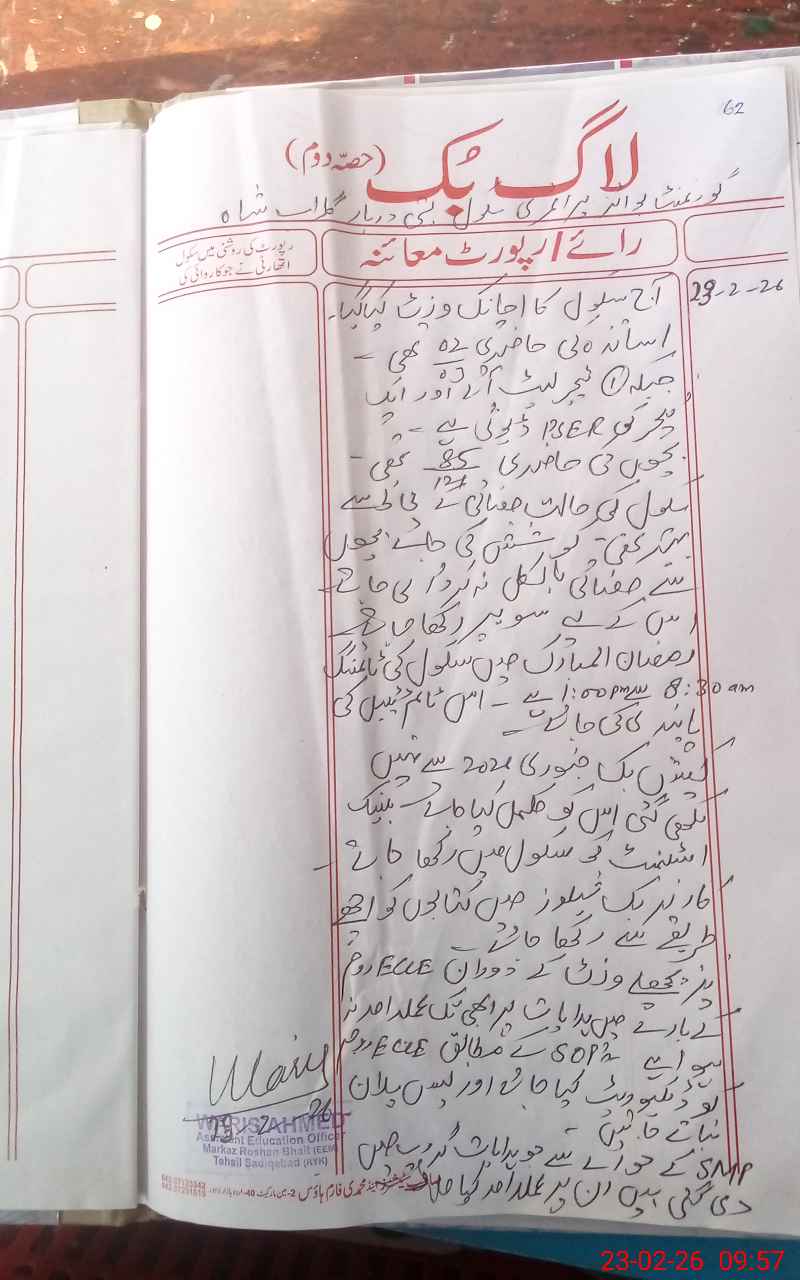 62
لاگ بک (حصہ دوم)
گورنمنٹ بوائز پرائمری سکول بستی دربار گلاب شاہ
رائے/رپورٹ معائنہ
رپورٹ کی روشنی میں سکول
اتھارٹی نے جو کاروائی کی
23-2-26
آج سکول کا اچانک وزٹ کیا گیا۔
اساتذہ کی حاضری تھی -
جبکہ ① ٹیچر لیٹ آئے اور ایک
ٹیچر کی PSER ڈیوٹی ہے -
بچوں کی حاضری 85 تھی -
سکول کی حالت صفائی کے لحاظ سے
بہتر تھی - کوشش کی جائے بچوں
سے صفائی بالکل نہ کروائی جائے -
اس کے لیے سویپر رکھا جائے -
رمضان المبارک میں سکول کی ٹائمنگ
8:30 am سے 1:00 pm ہے - اس ٹائم ٹیبل کی
پابندی کی جائے -
کیش بک جنوری 2026 سے نہیں
لکھی گئی اس کو مکمل کیا جائے بینک
اسٹیٹمنٹ کو سکول میں رکھا جائے -
کارنر بک شیلوز میں کتابوں کو اچھے
طریقے سے رکھا جائے -
نیز پچھلے وزٹ کے دوران ECCE روم
کے بارے میں ہدایات پر ابھی تک عملدرآمد نہ
ہوا ہے SOPs کے مطابق ECCE روم
کو ڈیکوریٹ کیا جائے اور لیسن پلان
بنائے جائیں -
SMP کے حوالے سے جو ہدایات گروپ میں
دی گئی ہیں ان پر عملدرآمد کیا جائے
Waris
23-2-26
WARIS AHMED
Assistant Education Officer
Markaz Roshan Bhait (EEM)
Tehsil Sadiqabad (RYK)
محمدی فارم ہاؤس 2-مین مارکیٹ 40-اردو بازار لاہور
23-02-26 09:57